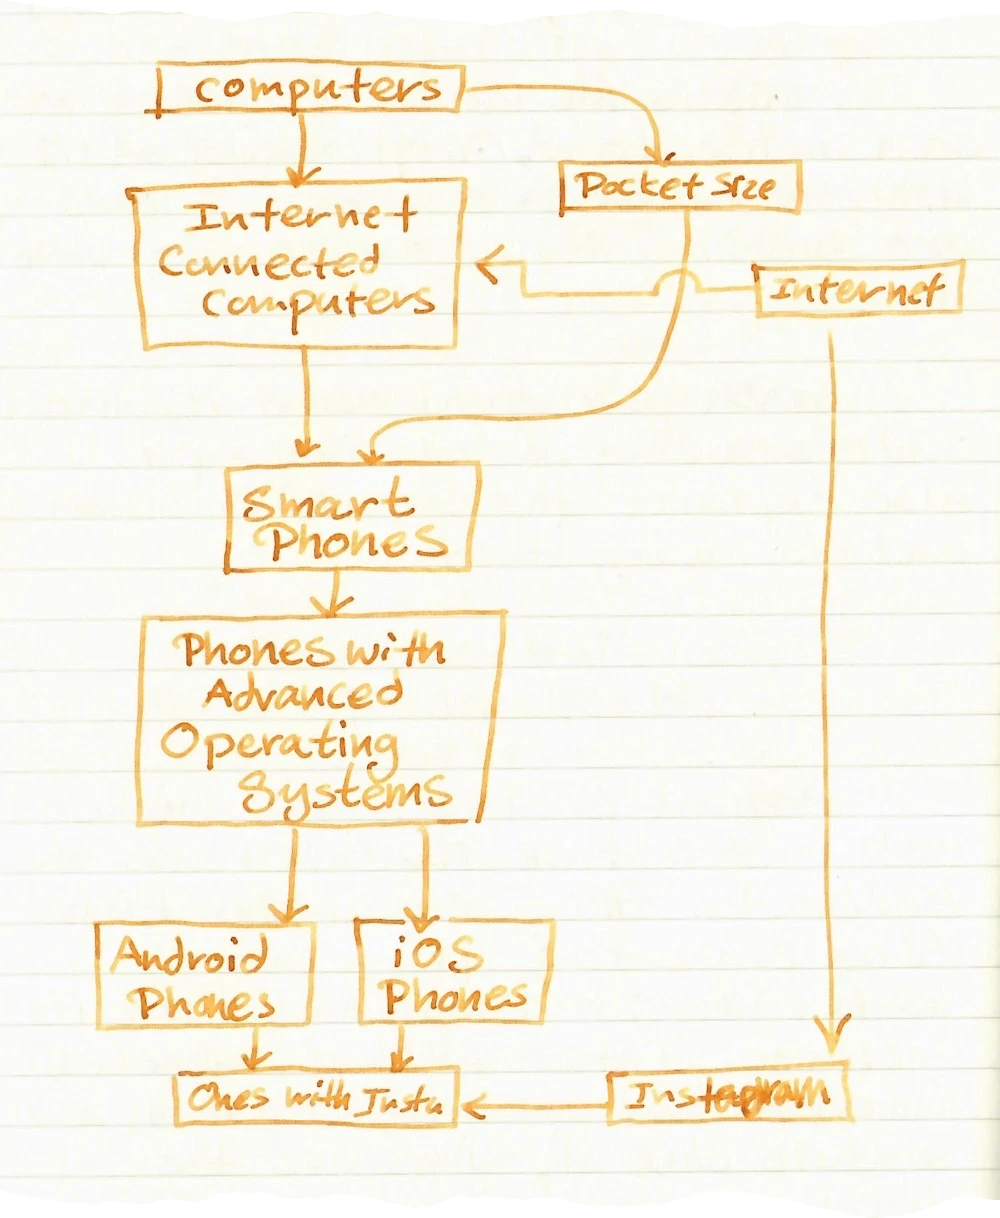 computers
Pocket Size
Internet
Connected
Computers
Internet
Smart
Phones
Phones with
Advanced
Operating
Systems
Android
Phones
iOS
Phones
Ones with Insta
Instagram